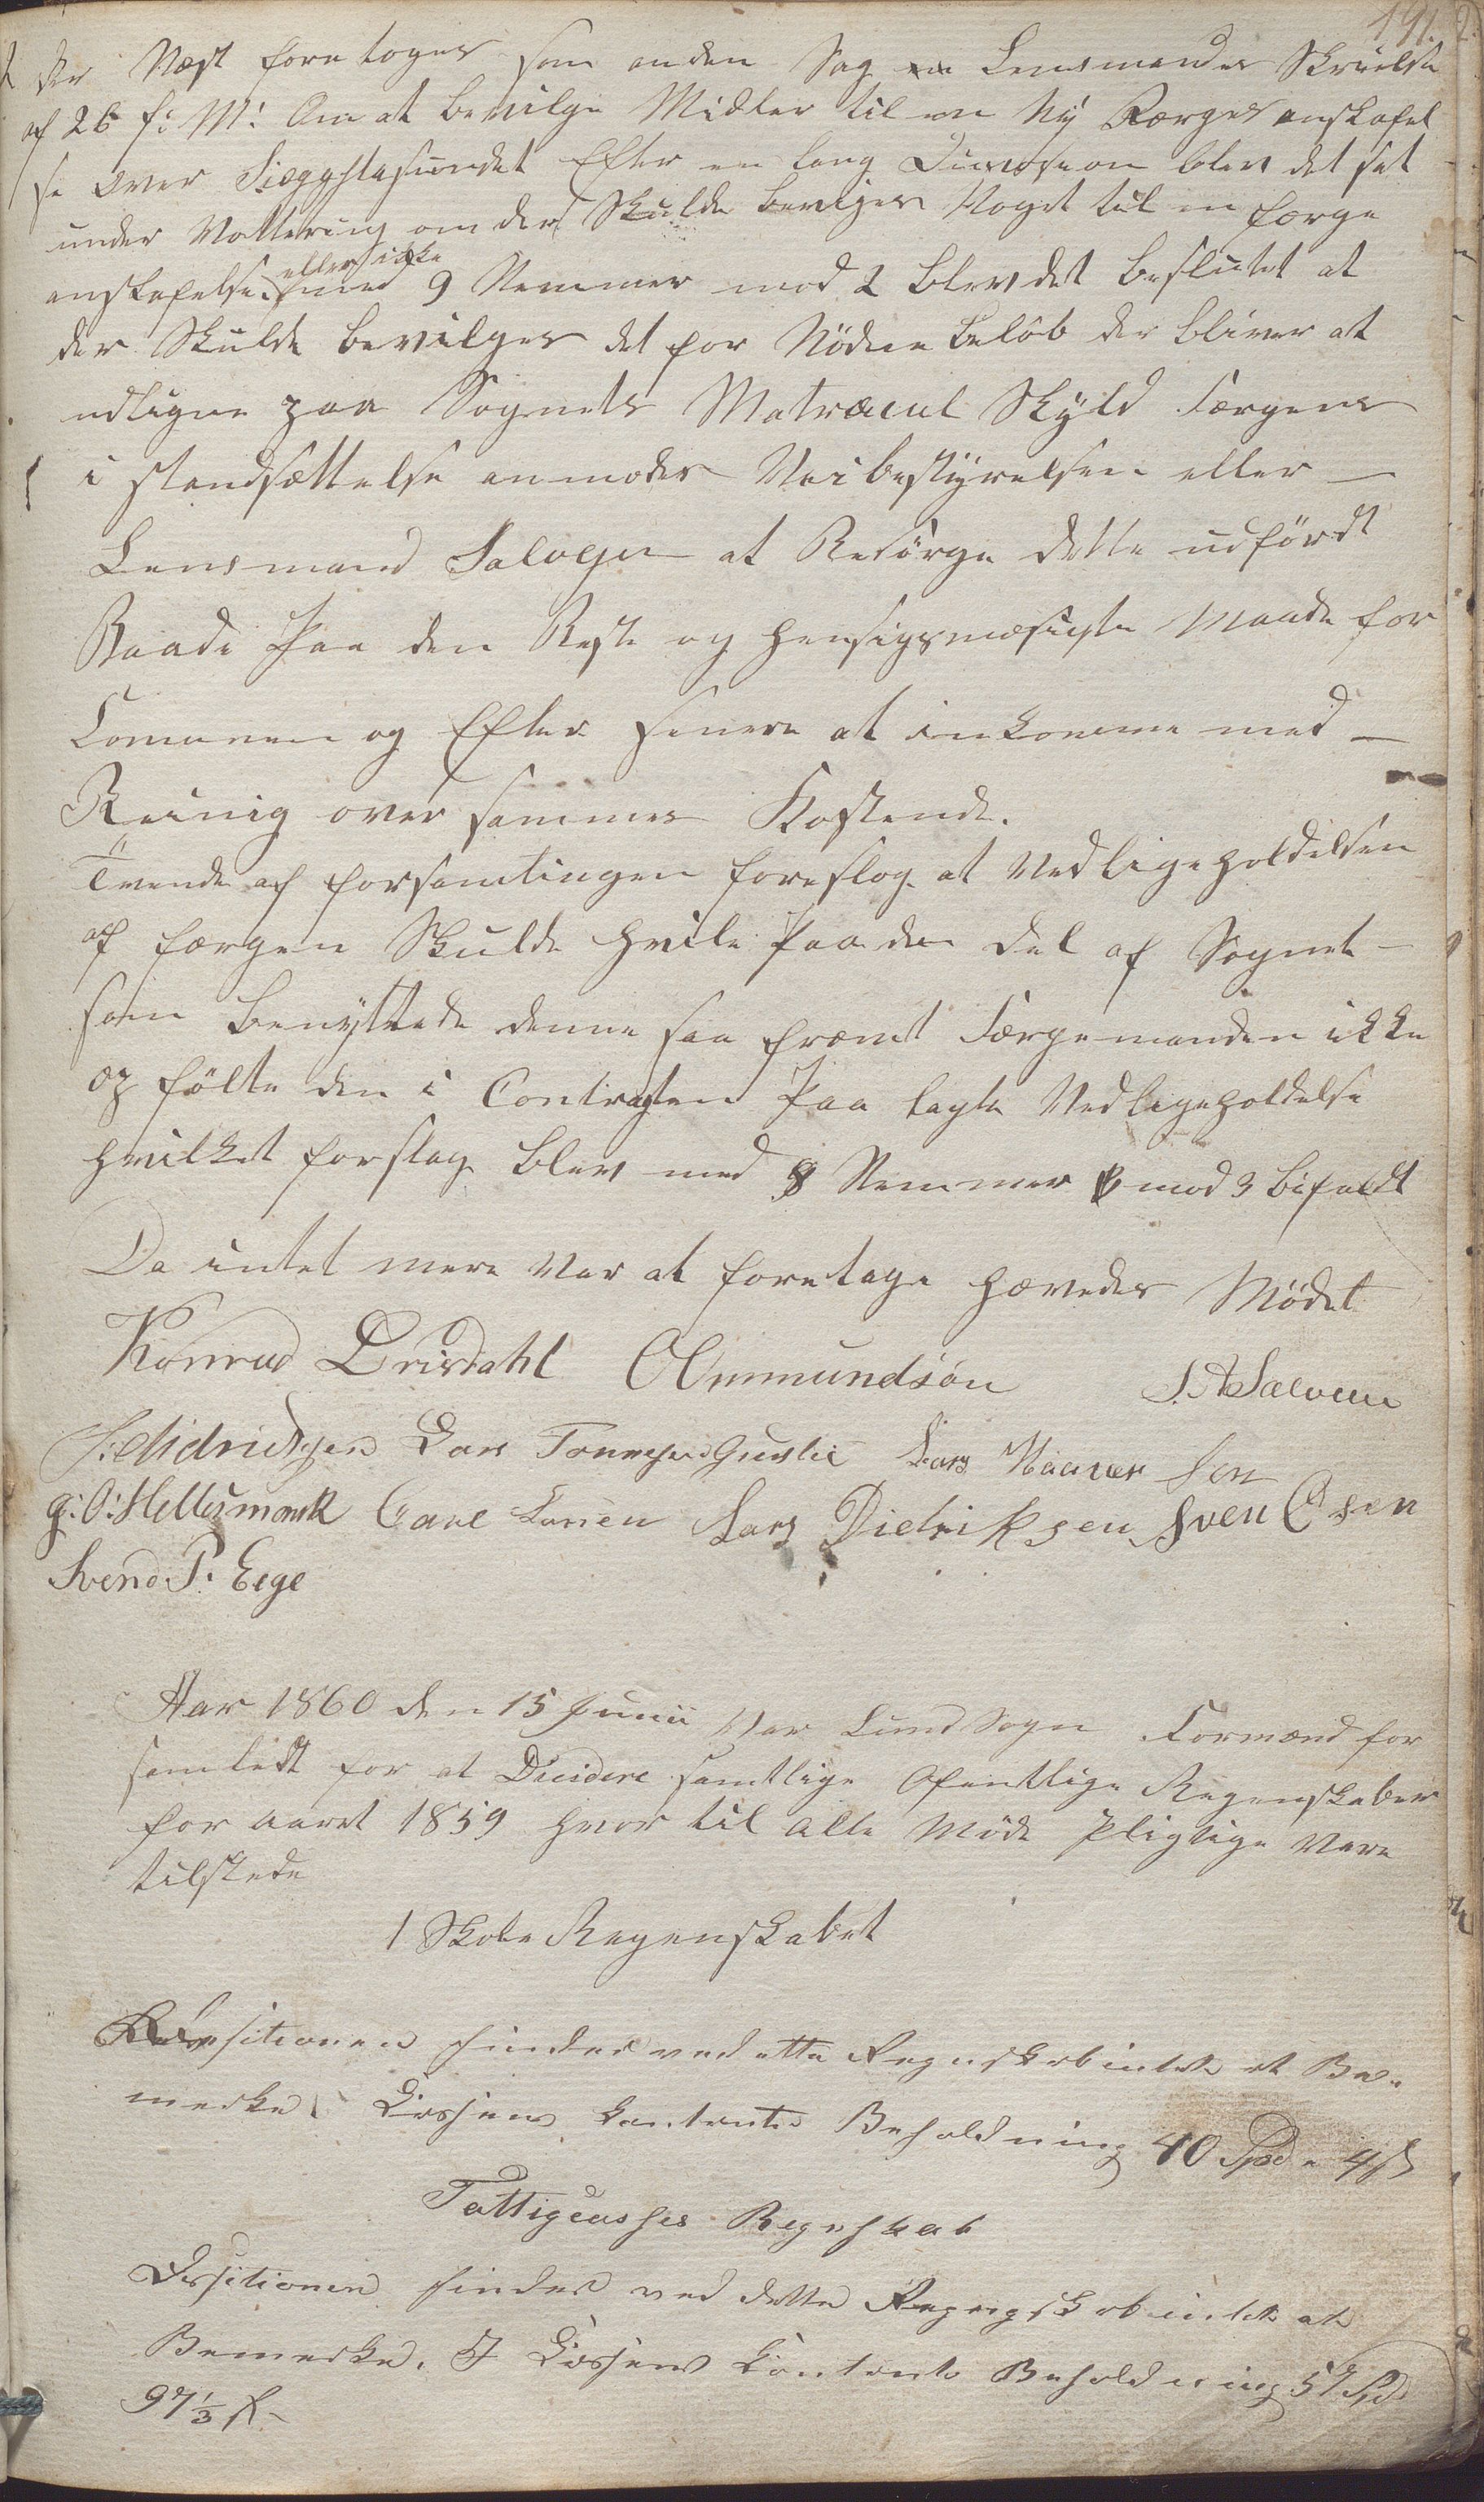 191.
der Næst foretoges som anden Sag Lensmandes Skrivelse
af 26 f: M: Om at bevilge Midler til en Ny Færges anskafel
se over Siøgghlasundet Efter en lang Discusion blev det sat
under Vottering om der Skulde beviges Noget til en færge
eller ikke
anskafelse. med 9 Stemmer mod 2 blev det besluttet at
der Skulde bevilges det for Nødne beløb der bliver at
udligne paa Sognets Matræcul Skyld Færgens
i standsættelse anmodes Veibestyrelsen eller
Lensmand Salvesen at Besørge dette udførdt
Baade Paa den Beste og hensigsmæsigste Maade for
Comunen og Efter senere at inkomme med
Reinig over sammes Kostende.
Tvende af forsamlingen foreslog at Vedligeholdelsen
af færgen Skulde hvile Paa den del af Sognet
som benyttede denne saa fræmt Færgemanden ikke
op følte den i Contragten Paa lagte Vedligeholdelse
hvilket forslag blev med 8 Stemmer mod 3 bifaldt
Da intet mere Var at foretage hævedes Mødet
Konrad Drisdahl OOmmundsøn S. A Salvesen
J. Midridtsen Lars Tønnesen Guslie Lars Haaver Sen
G: O: Hellesmark Carl Larsen Lars Didriksen Sven Osen
Svend P. Eege
Aar 1860 den 15 Junii Var Lund Sogn Formænd for
samledt for at Decidere samtlige Ofentlige Regenskaber
for aaret 1859 hvor til alle Møde Pligtige Vare
tilstede
1 Skole Regenskabet
findes ved dette Regnskab intet at Be-
merke. Cassens Contante Beholdning 40 Spd " 4 ß
Fattigcasses Regnskab
findes ved dette Regngskab intet at
Bemerke. I Cassens Contante Beholdning 57 Spd
97 1/3 ß